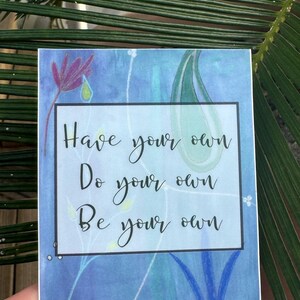 Have your own
Do your own
Be your own